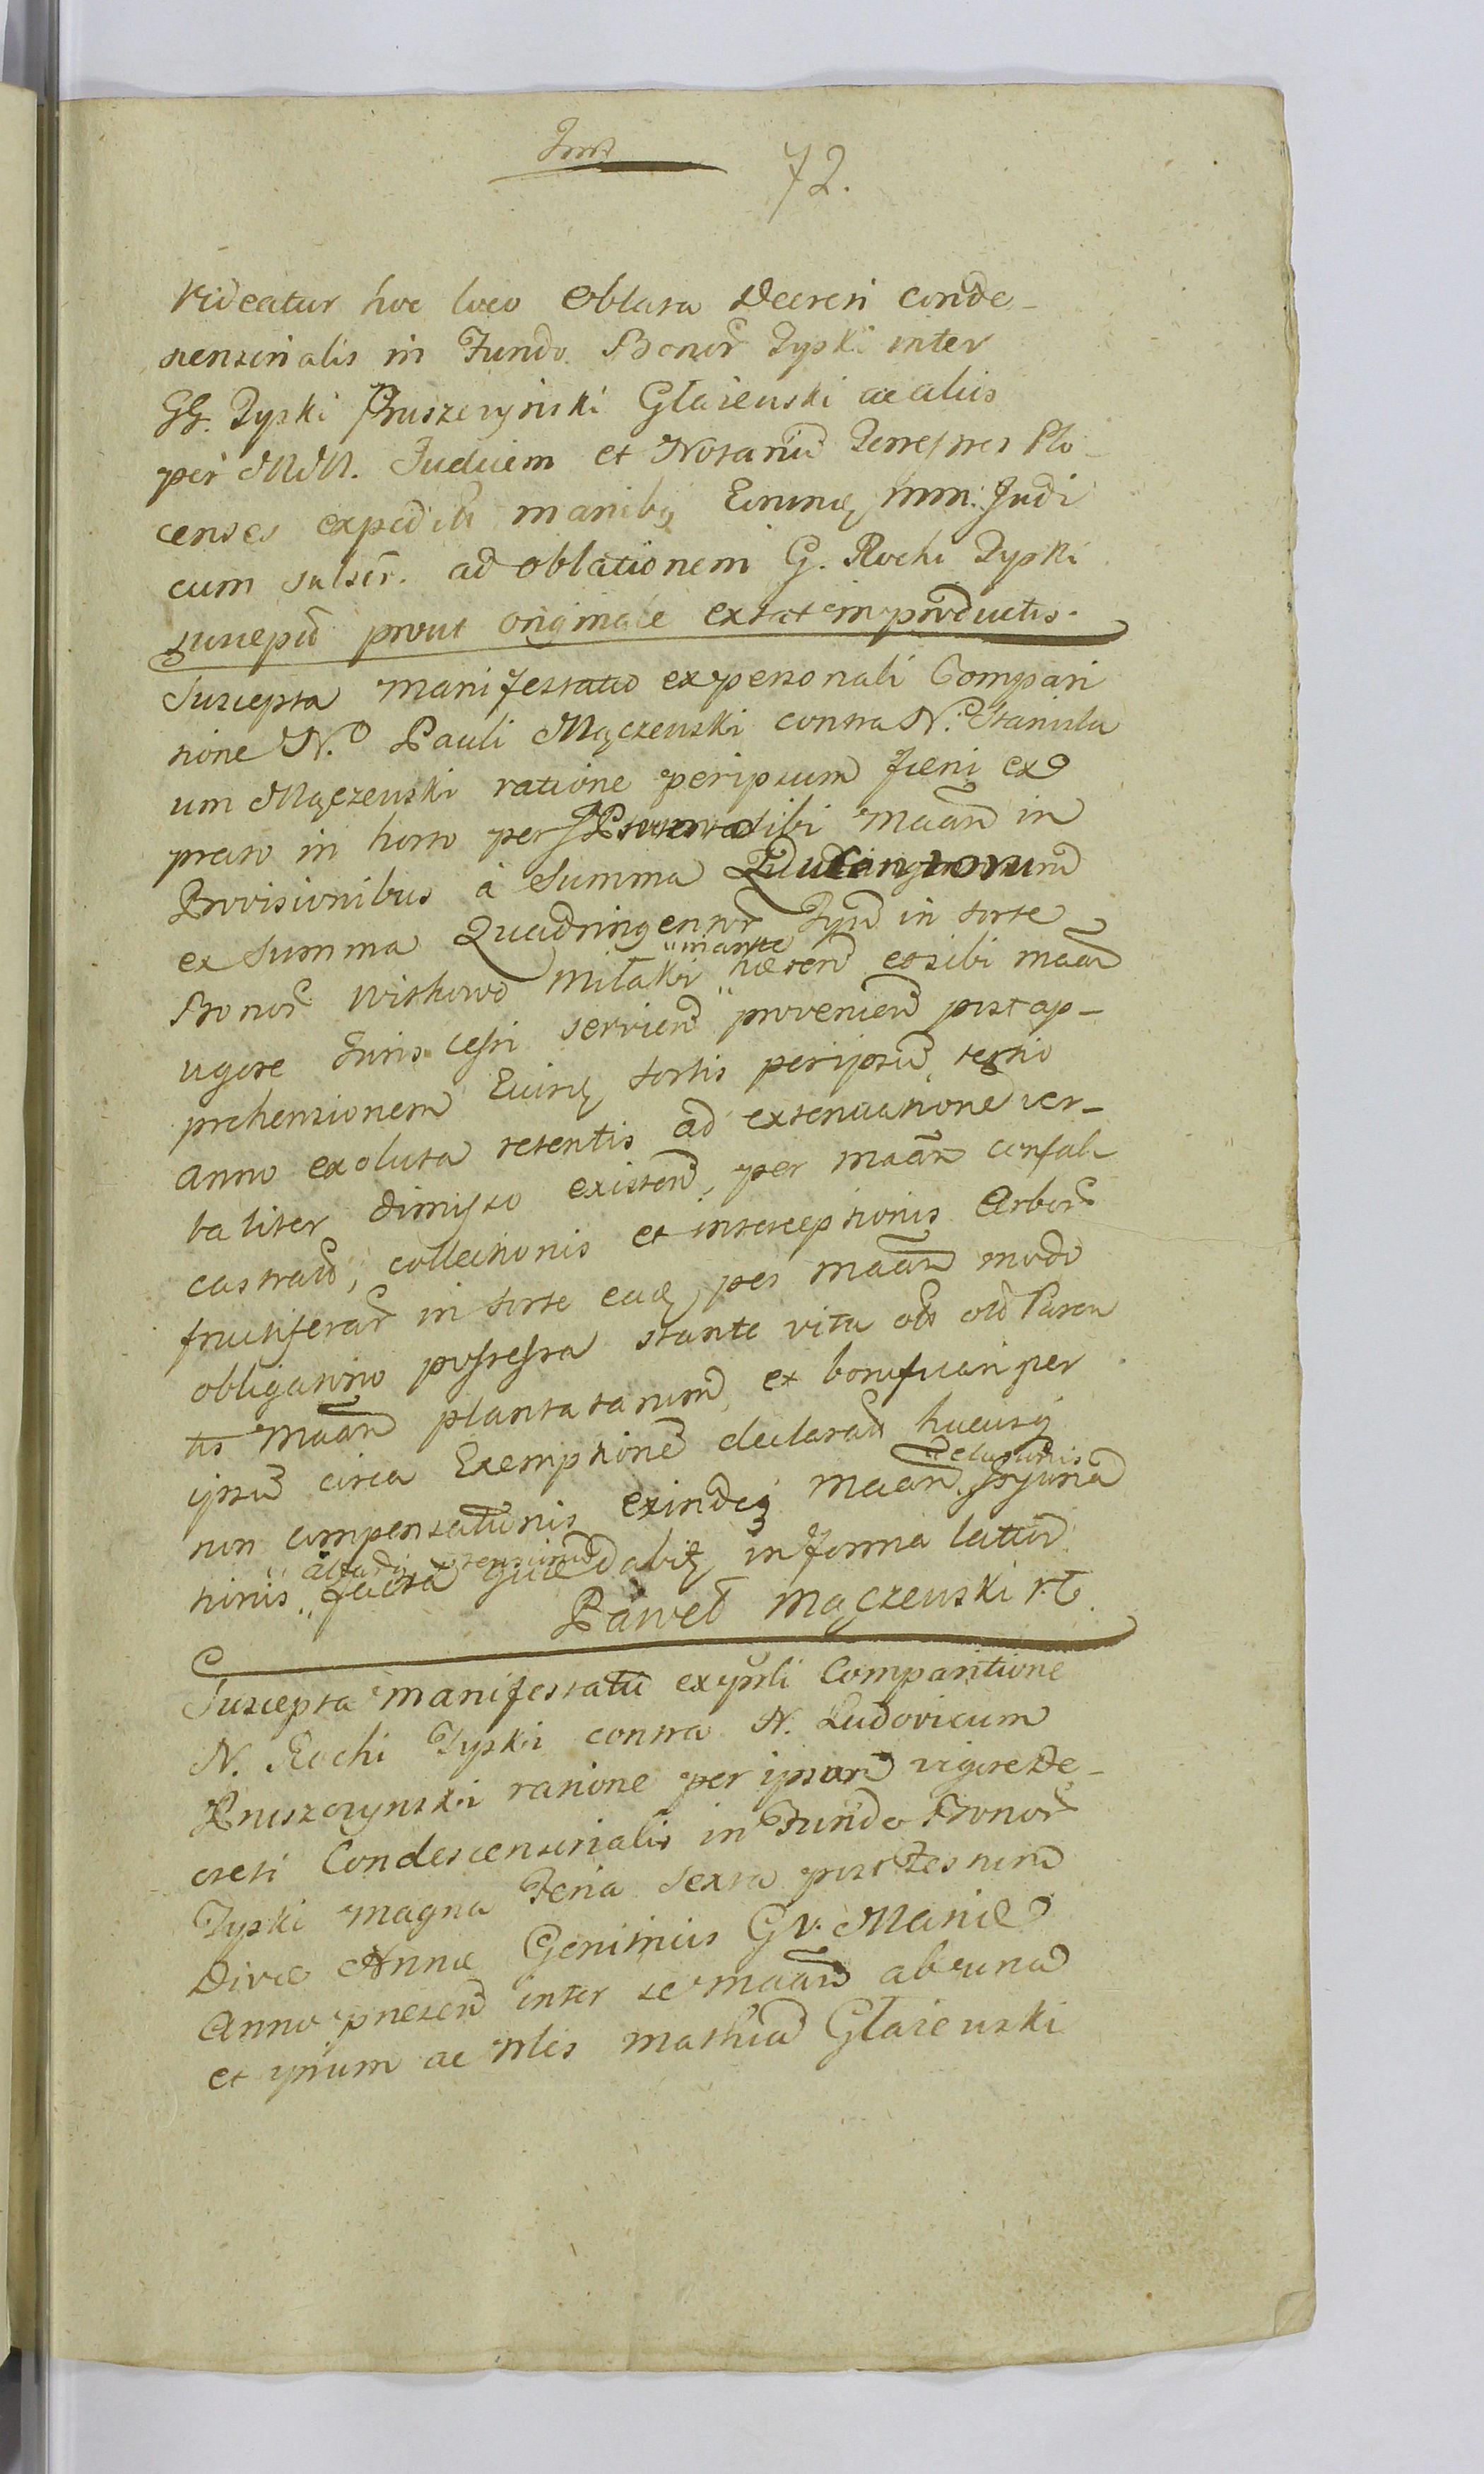 72.
Videatur hoc loco Oblata Decreti Conde-
scensorialis in Fundo Bonor Typki inter
GG. Typki Pruszczyński Głażewski ac aliis
per MM. Judicem et Notarium Terrestres Plo-
censes expediti manibq Eorundq mm. Judi
cum subscr. ad oblationem G. Rochi Typki
susceptu prout originale extat in productis.
Suscepta Manifestatio ex personali Compari
tione N. Pauli Mączewski contra N. Stanisla
um Mączewski ratione per ipsum Faeni ex
prato in horto per sibi Maan in
Provisionibus a Summa
ex Summa Quadringentor Tyn in sorte
Bonor Witkowo Milaki haeren et sibi maan
vigore Juris cessi servien provenien post ap-
prehensionem Eiusq sortis per ipsu tertio
anno exoluta retentis ad extenuatione ver-
baliter dimisso existen, per maan confab
castratu, collectionis et interceptionis Arbor
fructiferar in sorte eadq per maan modo
obligatorio possessa stante vita olim Paren
tis Maan plantatarum, et bonificari per
ipsu circa Exemptione declarat hucusq
non compensationis exindeq maan
tionis facta dabitq in forma lattior
Paweł Mączewski
Suscepta Manifestatio ex prsli Comparitione
N. Rochi Typki contra N. Ludovicum
Pruszczynski ratione per ipsum vigore De-
creti Condescensorialis in Fundo Bonor
Typki magna Feria Sexta post Festum
Divae Annae Genitricis G V. Mariae
Anno praesen inter se maan ab una
et ipsum ac Nles Mathia Głażewski